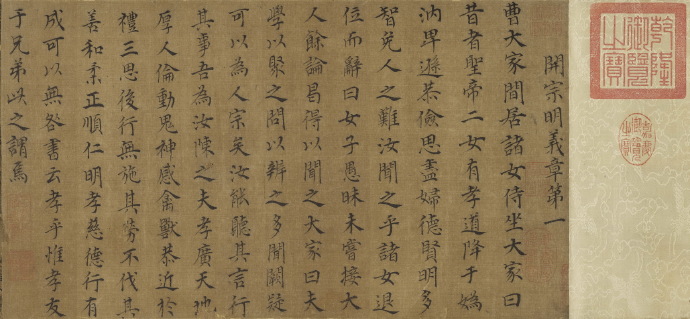 乾隆
御覽
之寶
嘉慶
御覽
之寶
開宗明義章第一
曹大家間居諸女侍坐大家曰
昔者聖帝二女有孝道降于媯
汭卑遜恭儉思盡婦德賢明多
智免人之難汝聞之乎諸女退
位而辭曰女子愚昧未嘗接大
人餘論曷得以聞之大家曰夫
學以聚之問以辨之多聞闕疑
可以為人宗矣汝能聽其言行
其事吾為汝陳之夫孝廣天地
厚人倫動鬼神感禽獸恭近於
禮三思後行無施其勞不伐其
善和柔正順仁明孝慈德行有
成可以無咎書云孝乎惟孝友
于兄弟此之謂焉